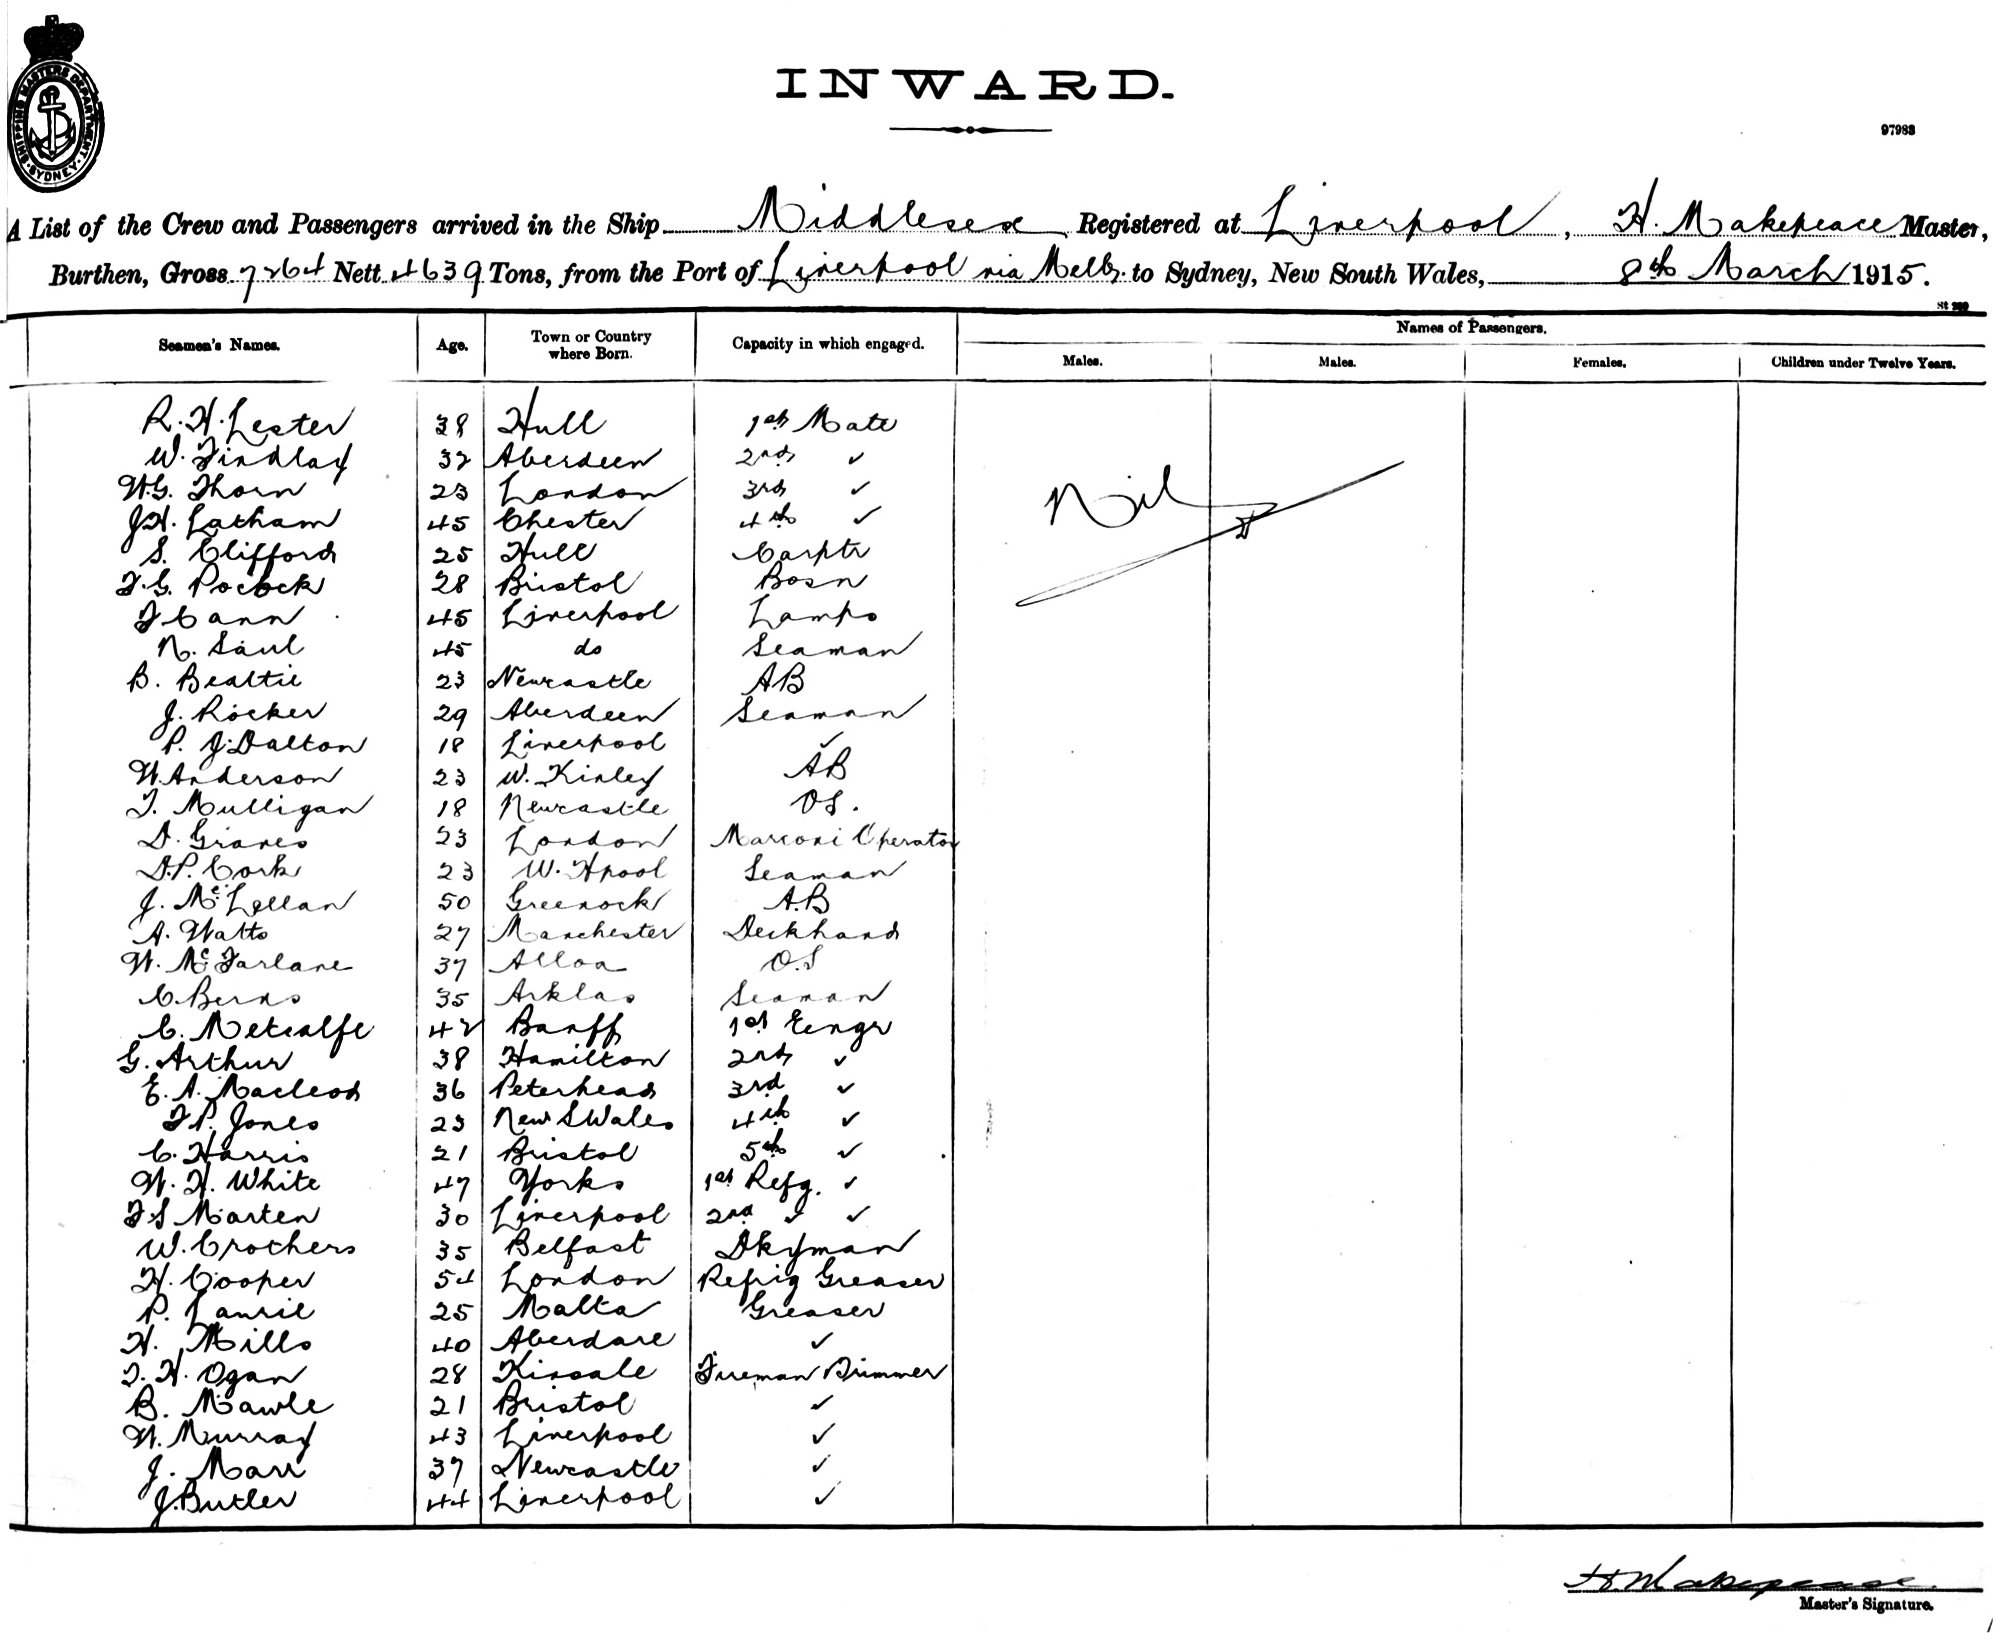 SHIPPING MASTERS DEPARTMENT. SYDNEY
INWARD.
97983
A List of the Crew and Passengers arrived in the Ship Middlesex Registered at Liverpool, H. Makepeace Master,
Burthen, Gross 7264 Nett 4639 Tons, from the Port of Liverpool via Melb. to Sydney, New South Wales, 8th March 1915.
Names of Passengers.
Seamen's Names. Age. Town or Country where Born. Capacity in which engaged. Males. Males. Females. Children under Twelve Years.
R. H. Lester 38 Hull 1st Mate
W. Findlay 32 Aberdeen 2nd ✓
W.G. Thorn 23 London 3rd ✓
J.H. Latham 45 Chester 4th ✓
Nil
S. Clifford 25 Hull Carptr
F.G. Pocock 28 Bristol Bosn
F Cann 45 Liverpool Lamps
N. Saul 45 do Seaman
B. Beattie 23 Newcastle AB
J. Rocker 29 Aberdeen Seaman
P. J. Dalton 18 Liverpool ✓
W. Anderson 23 AB
T. Mulligan 18 Newcastle OS.
D. Graves 23 London Marconi Operator
D.P. Cork 23 W. Hpool Seaman
J. McLellan 50 Greenock A.B
A. Watts 27 Manchester Deckhand
W. McFarlane 37 Alloa O.S
C. Berns 35 Arklas Seaman
C. Metcalfe 42 Banff 1st Eengr
G. Arthur 38 Hamilton 2nd ✓
E. A. Macleod 36 Peterhead 3rd ✓
F P. Jones 23 New S Wales 4th ✓
C. Harris 21 Bristol 5th ✓
W. H. White 47 Yorks 1st Refg. ✓
F S Marten 30 Liverpool 2nd ✓ ✓
W. Crothers 35 Belfast Dkyman
H. Cooper 54 London Refrig Greaser
P. Laurie 25 Malta Greaser
H. Mills 40 Aberdare ✓
T. H. Ogan 28 Kinsale Fireman Trimmer
B. Mawle 21 Bristol ✓
W. Murray 43 Liverpool ✓
J. Marr 37 Newcastle ✓
J. Butler 44 Liverpool ✓
H. Makepeace
Master's Signature.